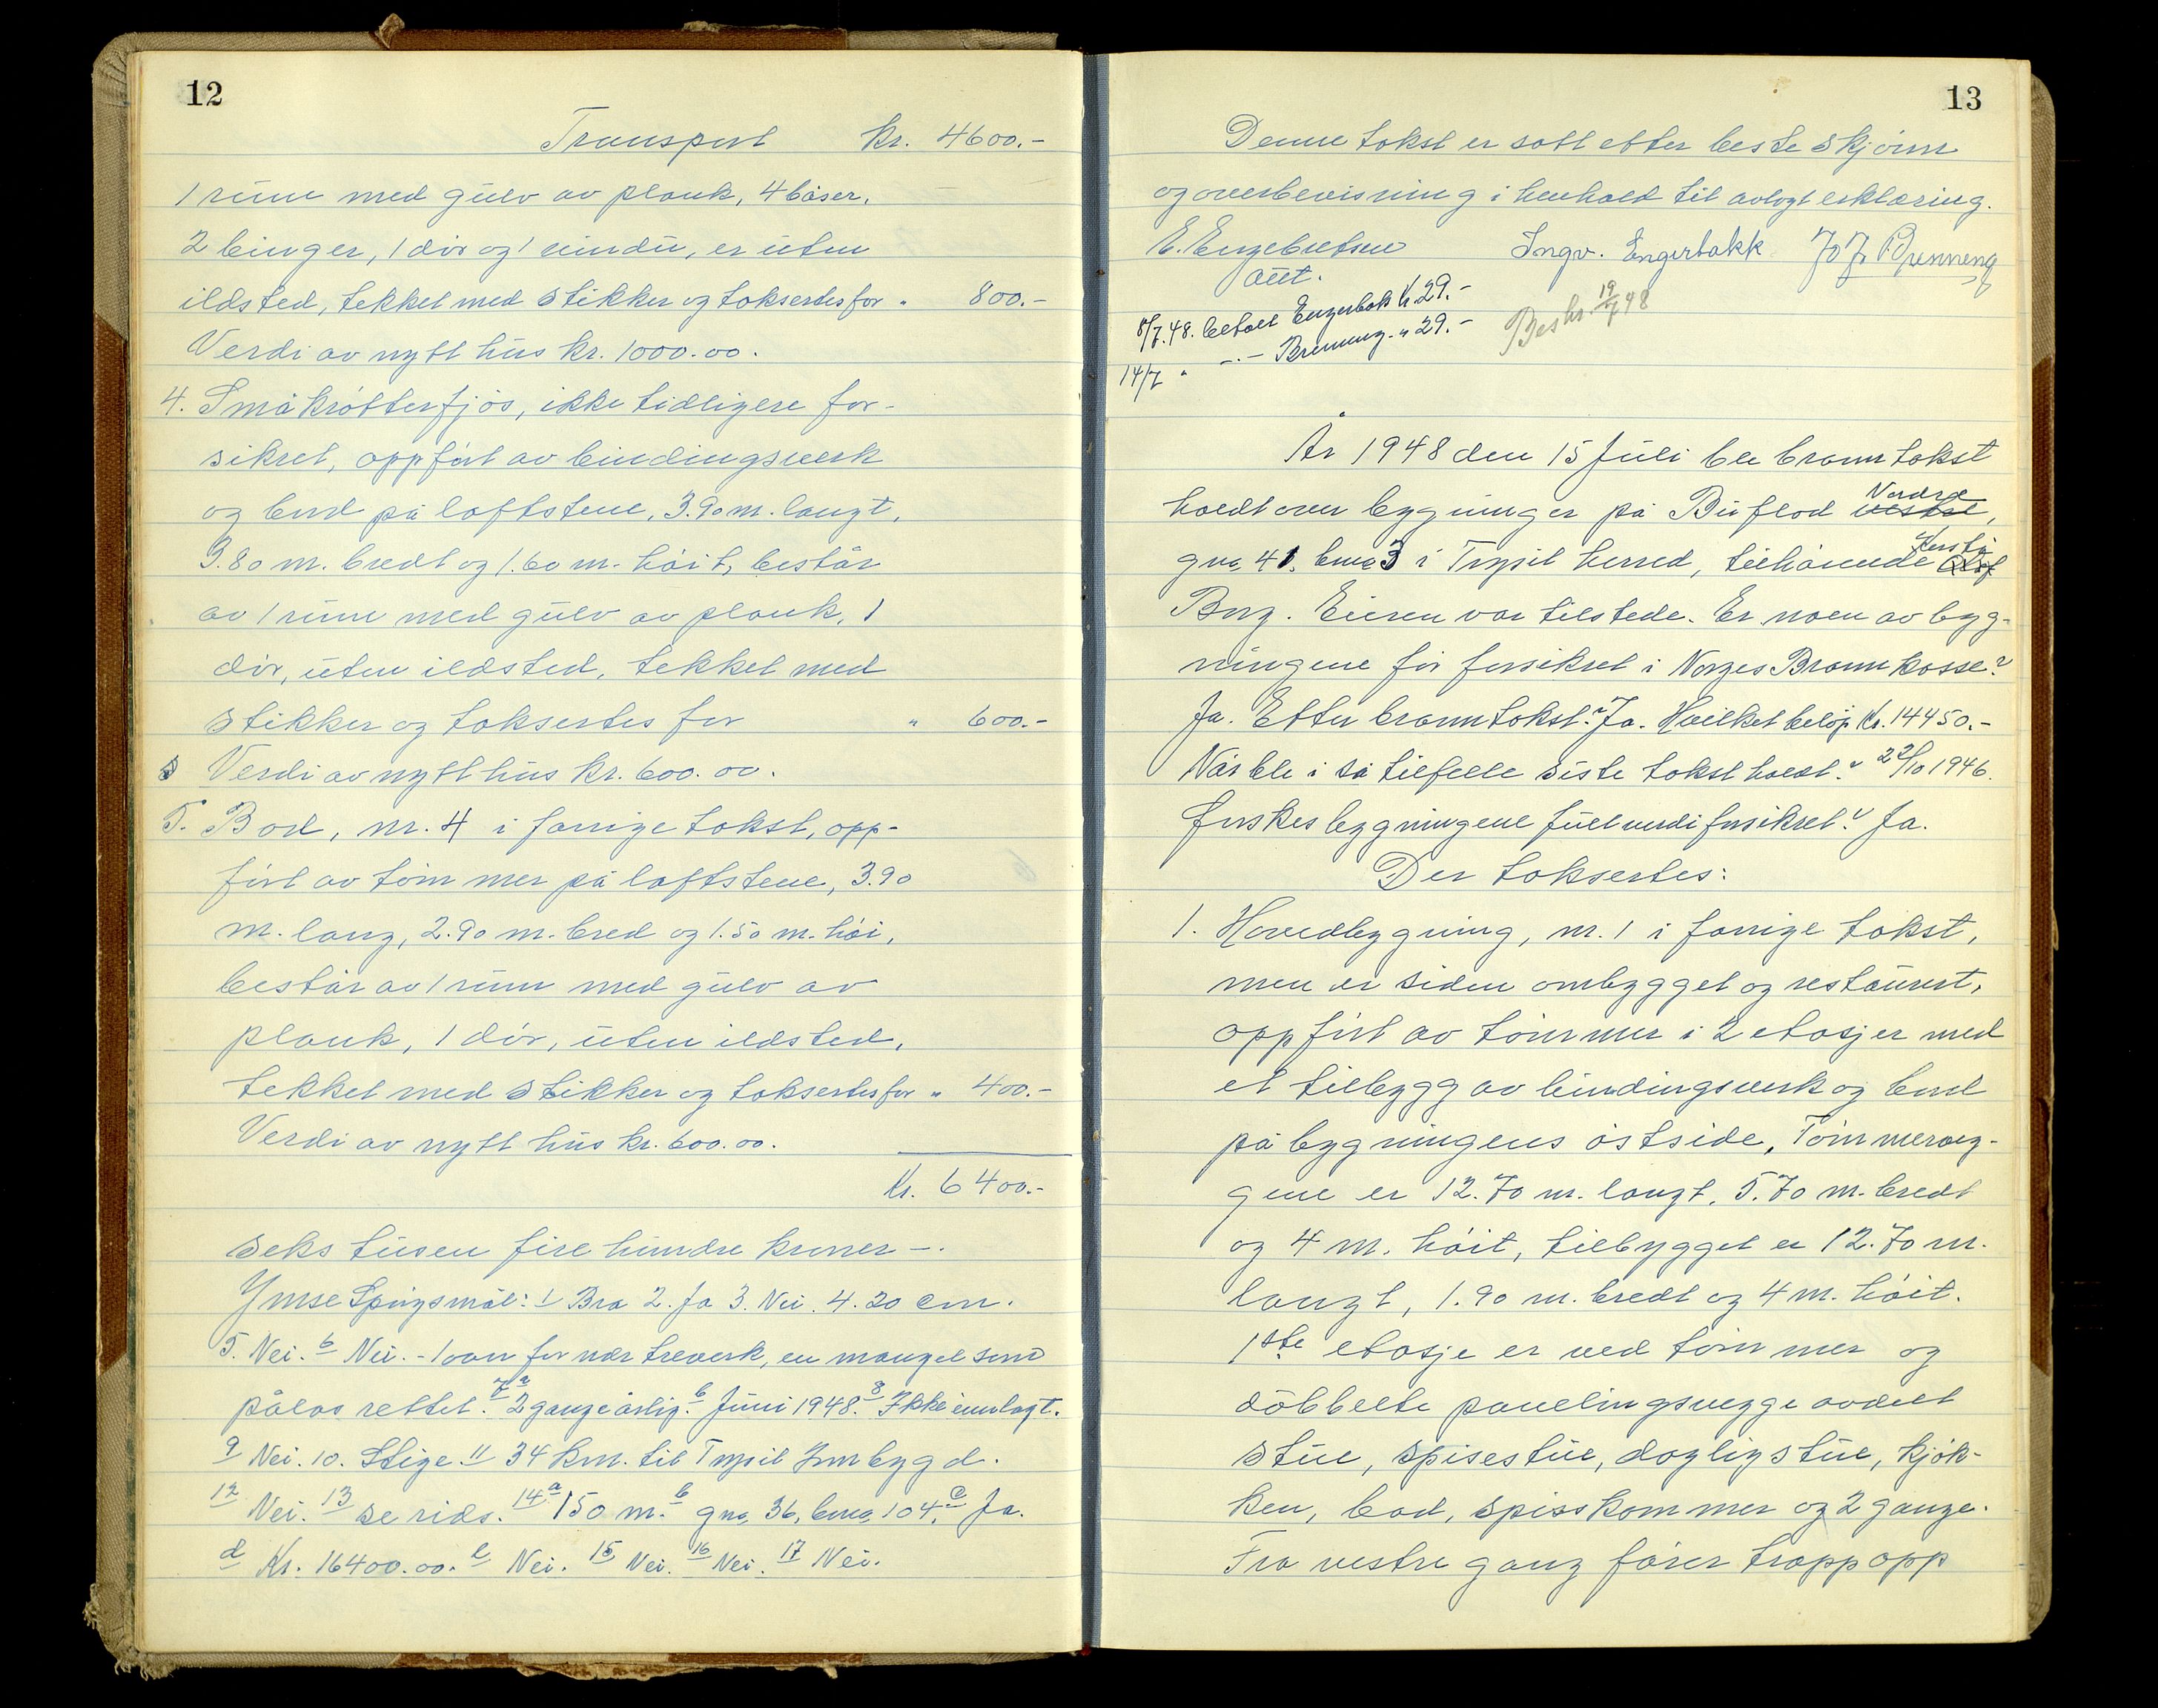 12
Transport kr. 4600.-
1 rum med gulv av plank, 4 båser,
2 binger, 1 dør og 1 vindu, er uten
ildsted, tekket med stikker og taksertes for " 800.-
Verdi av nytt hus kr. 1000.00.
4. Småkrøtterfjøs, ikke tidligere for-
sikret, oppført av bindingsverk
og bord på loftstene, 3.90 m. langt,
3.80 m. bredt og 1.60 m. høit, består
av 1 rum med gulv av plank, 1
dør, uten ildsted, tekket med
stikker og taksertes for " 600.-
Verdi av nytt hus kr. 600.00.
5. Bod, nr. 4 i forrige takst, opp-
ført av tømmer på loftstene, 3.90
m. lang, 2.90 m. bred og 1.50 m. høi,
består av 1 rum med gulv av
plank, 1 dør, uten ildsted,
tekket med stikker og taksertes for " 400.-
Verdi av nytt hus kr. 600.00.
Kr. 6400.-
seks tusen fire hundre kroner -.
Ymse Spørgsmål: 1 Bra 2. Ja 3. Nei. 4. 20 cm.
5. Nei. 6 Nei. - 1 ovn for nær treverk, en mangel som
pålas rettet. 7a 2 gange årlig. b Juni 1948. 8 Ikke innlagt.
9 Nei. 10. Stige. 11 34 km. til Trysil Innbygd.
12 Nei. 13 se rids. 14a 150 m. b gno 36, bno 104. c Ja.
d Kr. 16400.00. e Nei. 15 Nei. 16 Nei. 17 Nei.
13
Denne takst er satt etter beste skjønn
og overbevisning i henhold til avlagt erklæring.
E. Engebretsen Ingv. Engerbakk Jo J. Brenneng
autt.
8/7.48. betalt Engerbak k. 29.-
14/7 " -.- Brenneng. " 29.-
Beskr. 19/7 48
År 1948 den 15 Juli ble branntakst
holdt over bygninger på Buflod vestre Nordre,
gno 41. bno 3 i Trysil herred, tilhørende Olof
Brig. Eieren var tilstede. Er noen av byg-
ningene før forsikret i Norges Brannkasse?
Ja. Etter branntakst? Ja. Hvilket beløp Kr. 14450.-
Når ble i så tilfelle siste takst holdt? 22/10 1946.
Ønskes bygningene fullverdiforsikret? Ja.
Der taksertes:
1. Hovedbygning, nr. 1 i forrige takst,
men er siden ombygget og restaurert,
oppført av tømmer i 2 etasjer med
et tilbygg av bindingsverk og bord
på bygningens østside, Tømmerveg-
gene er 12.70 m. langt, 5.70 m. bredt
og 4 m. høit, tilbygget er 12.70 m.
langt, 1.90 m. bredt og 4 m. høit.
1ste etasje er ved tømmer og
dobbelte panelingsvegge avdelt
stue, spisestue, dagligstue, kjøk-
ken, bad, spisskammer og 2 gange.
Fra vestre gang fører trapp opp